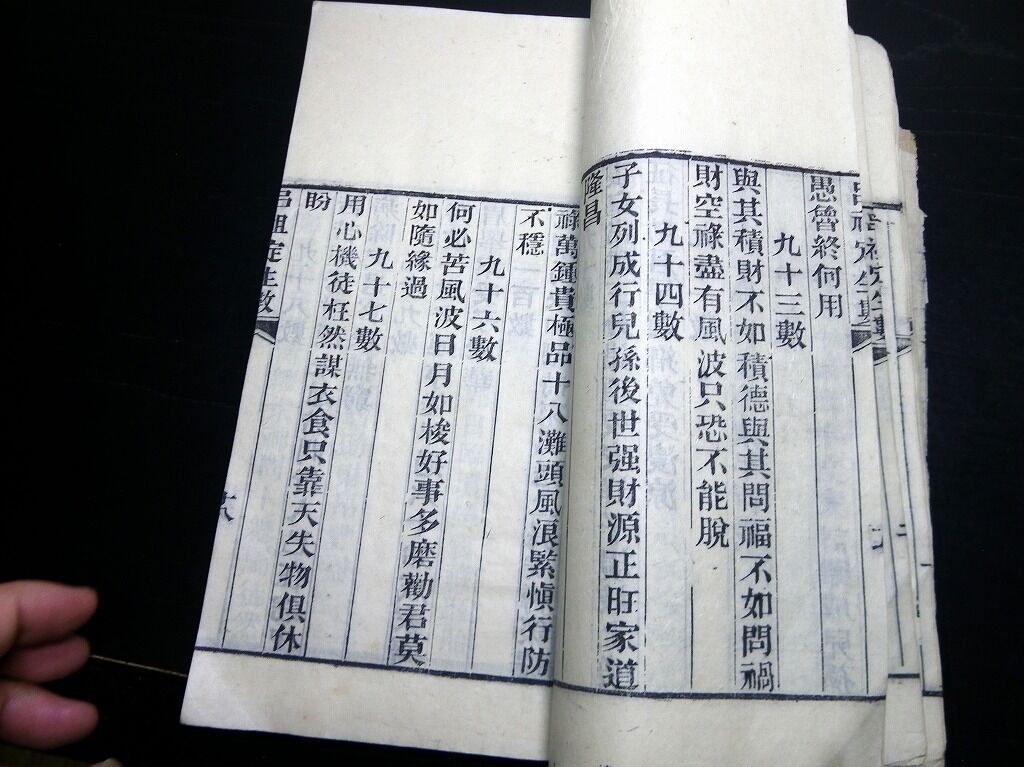 愚魯終何用
九十三數
與其積財不如積德與其問福不如問禍
財空祿盡有風波只恐不能脫
九十四數
子女列成行兒孫後世强財源正旺家道
隆昌
祿萬鍾貴極品十八灘頭風浪緊愼行防
不穩
九十六數
何必苦風波日月如梭好事多磨勸君莫
如隨緣過
九十七數
用心機徒枉然謀衣食只靠天失物俱休
盼
呂祖定生數